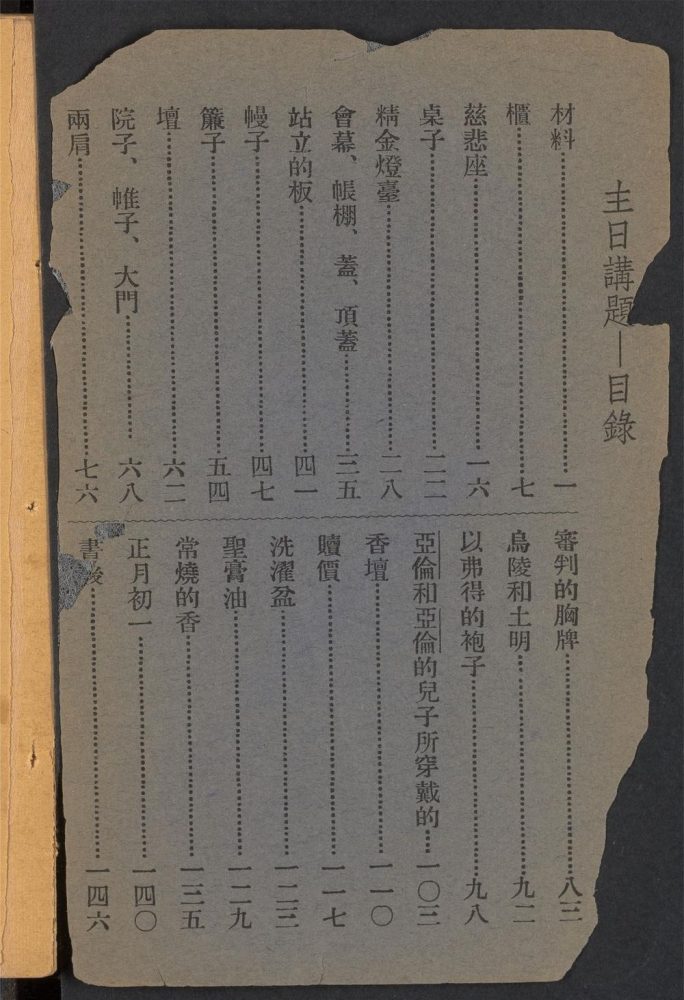 主日講題—目錄
材料……一
櫃……七
慈悲座……一六
桌子……二二
精金燈臺……二八
會幕、帳棚、蓋、頂蓋……三五
站立的板……四一
幔子……四七
簾子……五四
壇……六二
院子、帷子、大門……六八
兩肩……七六
審判的胸牌……八三
烏陵和土明……九二
以弗得的袍子……九八
亞倫和亞倫的兒子所穿戴的……一〇三
香壇……一一〇
贖價……一一七
洗濯盆……一二三
聖膏油……一二九
常燒的香……一三五
正月初一……一四〇
書後……一四六